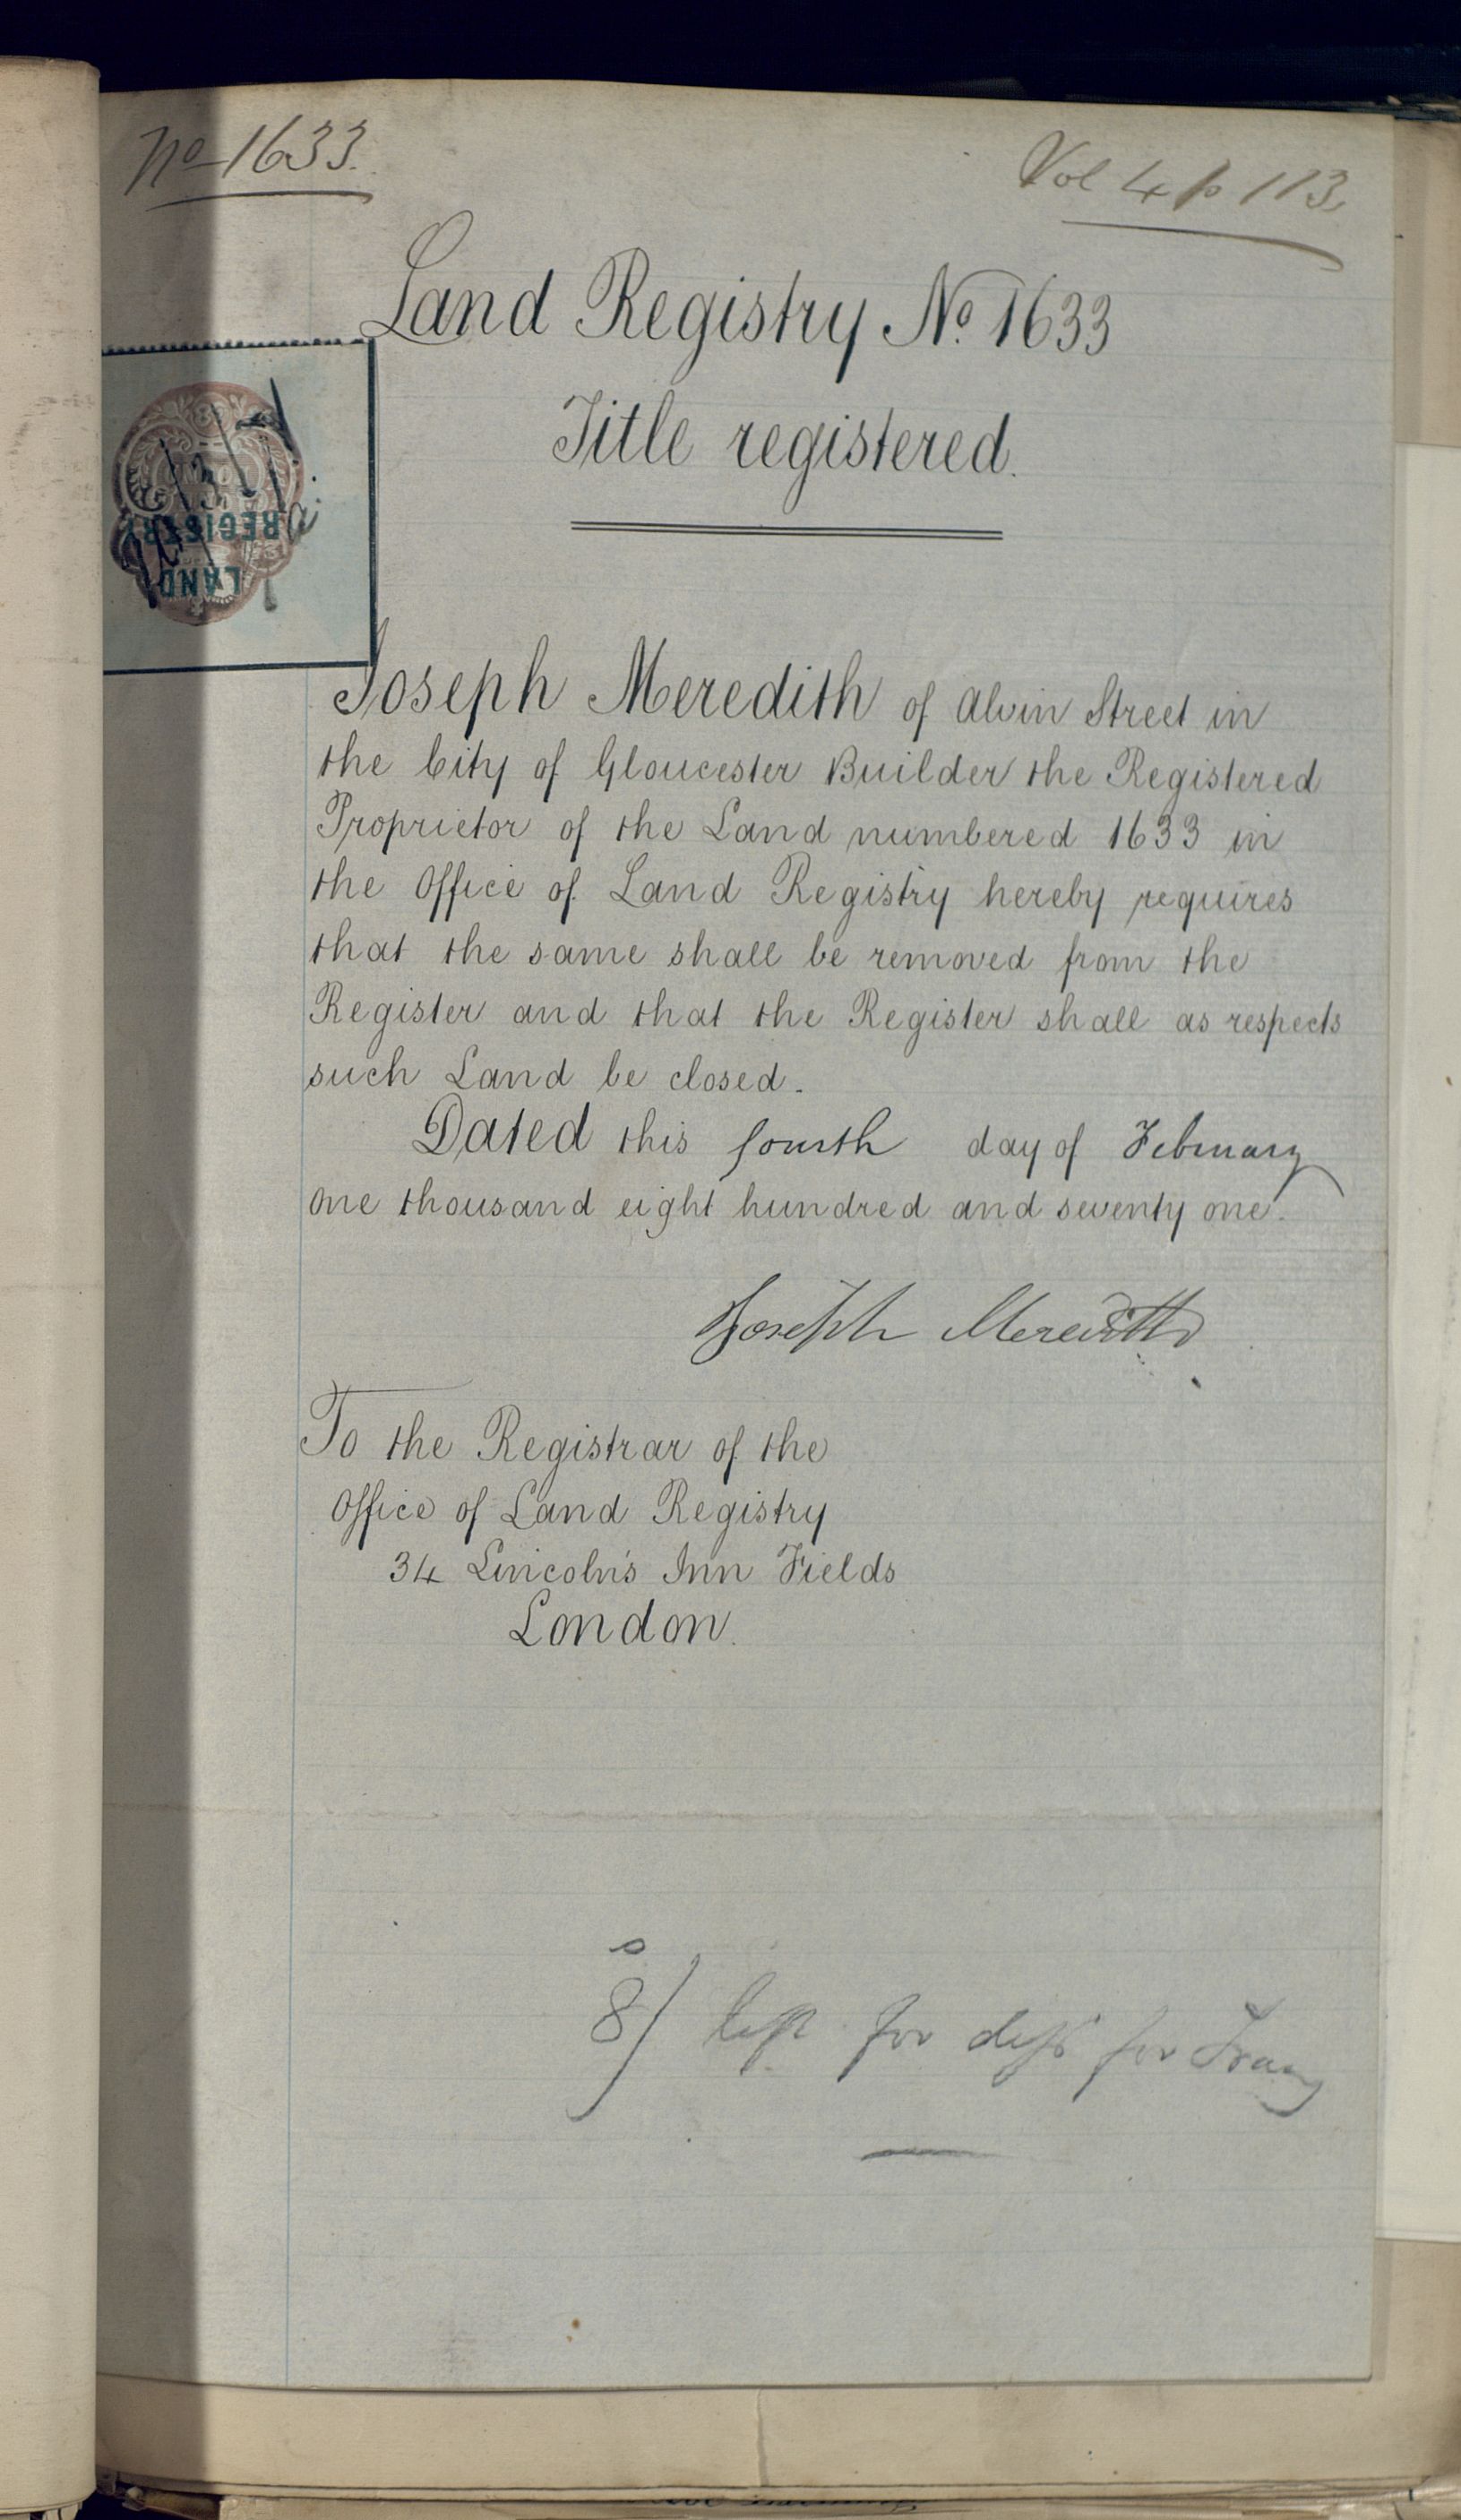 No 1633.
Vol 4 p 113
Land Registry No. 1633
Title registered.
LAND
REGISTRY
Joseph Meredith of Alvin Street in
the City of Gloucester Builder the Registered
Proprietor of the Land numbered 1633 in
the Office of Land Registry hereby requires
that the same shall be removed from the
Register and that the Register shall as respects
such Land be closed.
Dated this fourth day of February
one thousand eight hundred and seventy one.
Joseph Meredith
To the Registrar of the
Office of Land Registry
34 Lincoln's Inn Fields
London.
8/ left for for